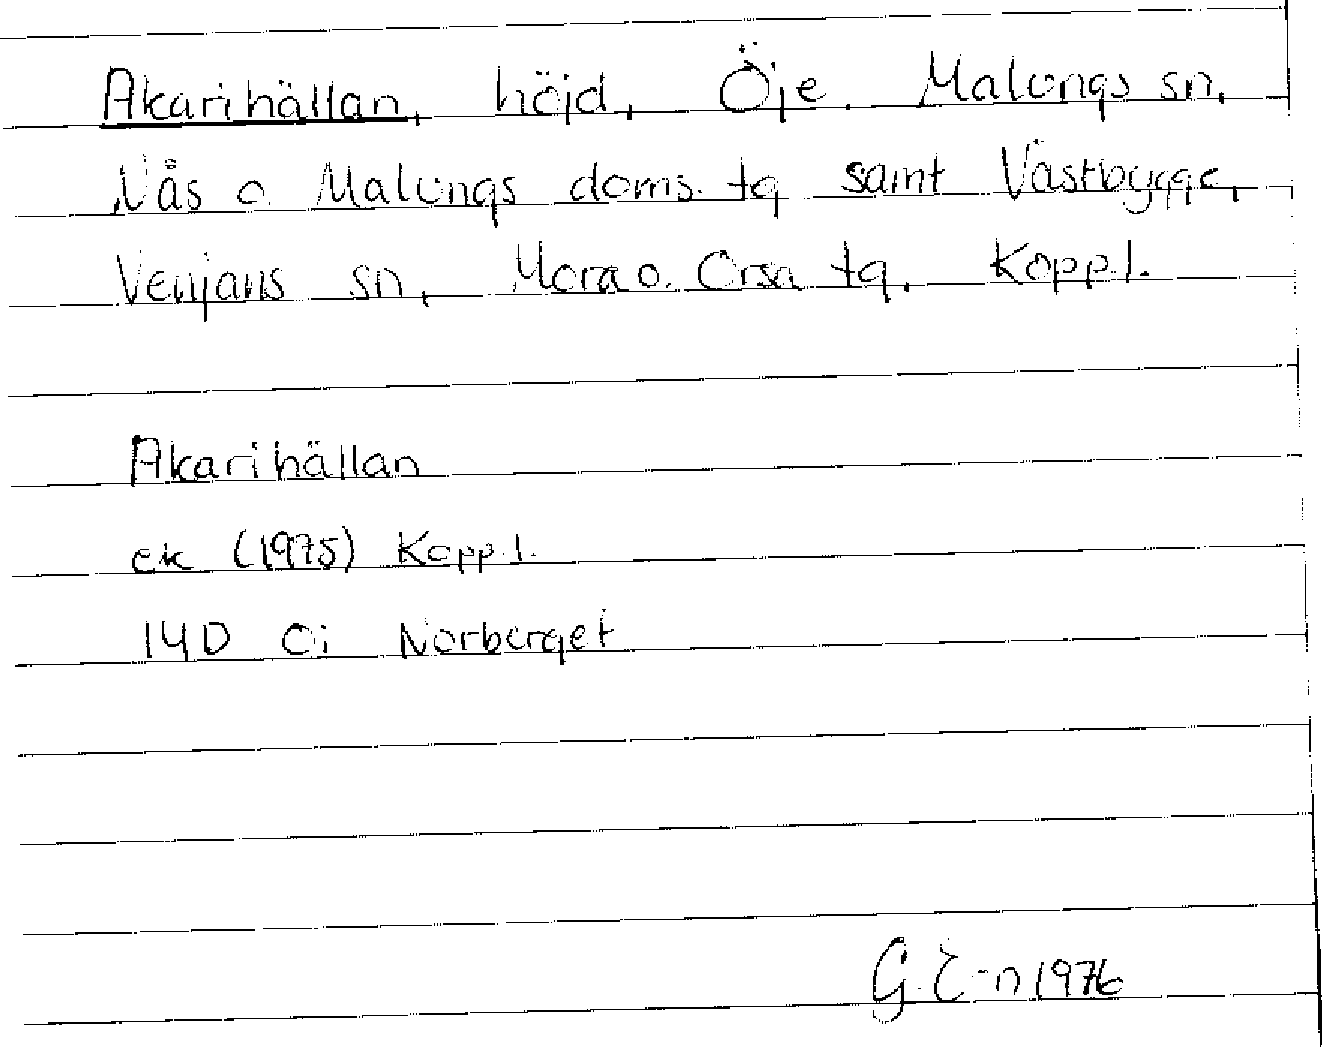 Akarihällan, höjd, Öje, Malungs sn,
Nås o. Malungs doms. tg samt Västbygge,
Venjans sn, Mora o. Orsa tg. Kopp.l.
Akarihällan
ek (1975) Kopp.l.
14D 0i Norberget
G. E-n 1976